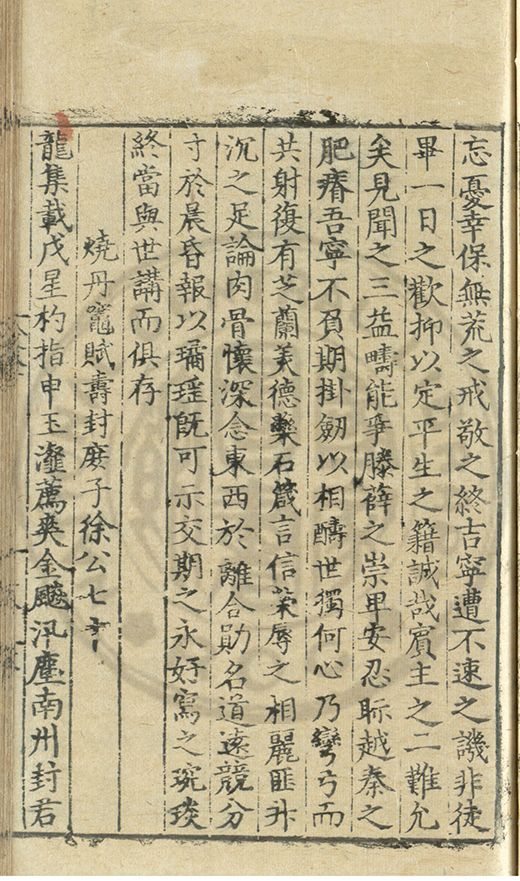 忘憂幸保無荒之戒敬之終吉寧遭不速之譏非徒
畢一日之歡抑以定平生之籍誠哉賓主之二難允
矣見聞之三益疇能爭滕薛之崇卑安忍眎越秦之
肥瘠吾寧不負期掛劒以相酧世獨何心乃彎弓而
共射復有芝蘭美德藥石箴言信榮辱之相麗匪升
沉之足論肉骨懷深念東西於離合勛名道遠競分
寸於晨昏報以璚瑤既可示交期之永好寫之琬琰
終當與世講而俱存
燒丹竈賦壽封庻子徐公七十
龍集載戊星杓指申玉瀣薦爽金飈汛塵南州封君